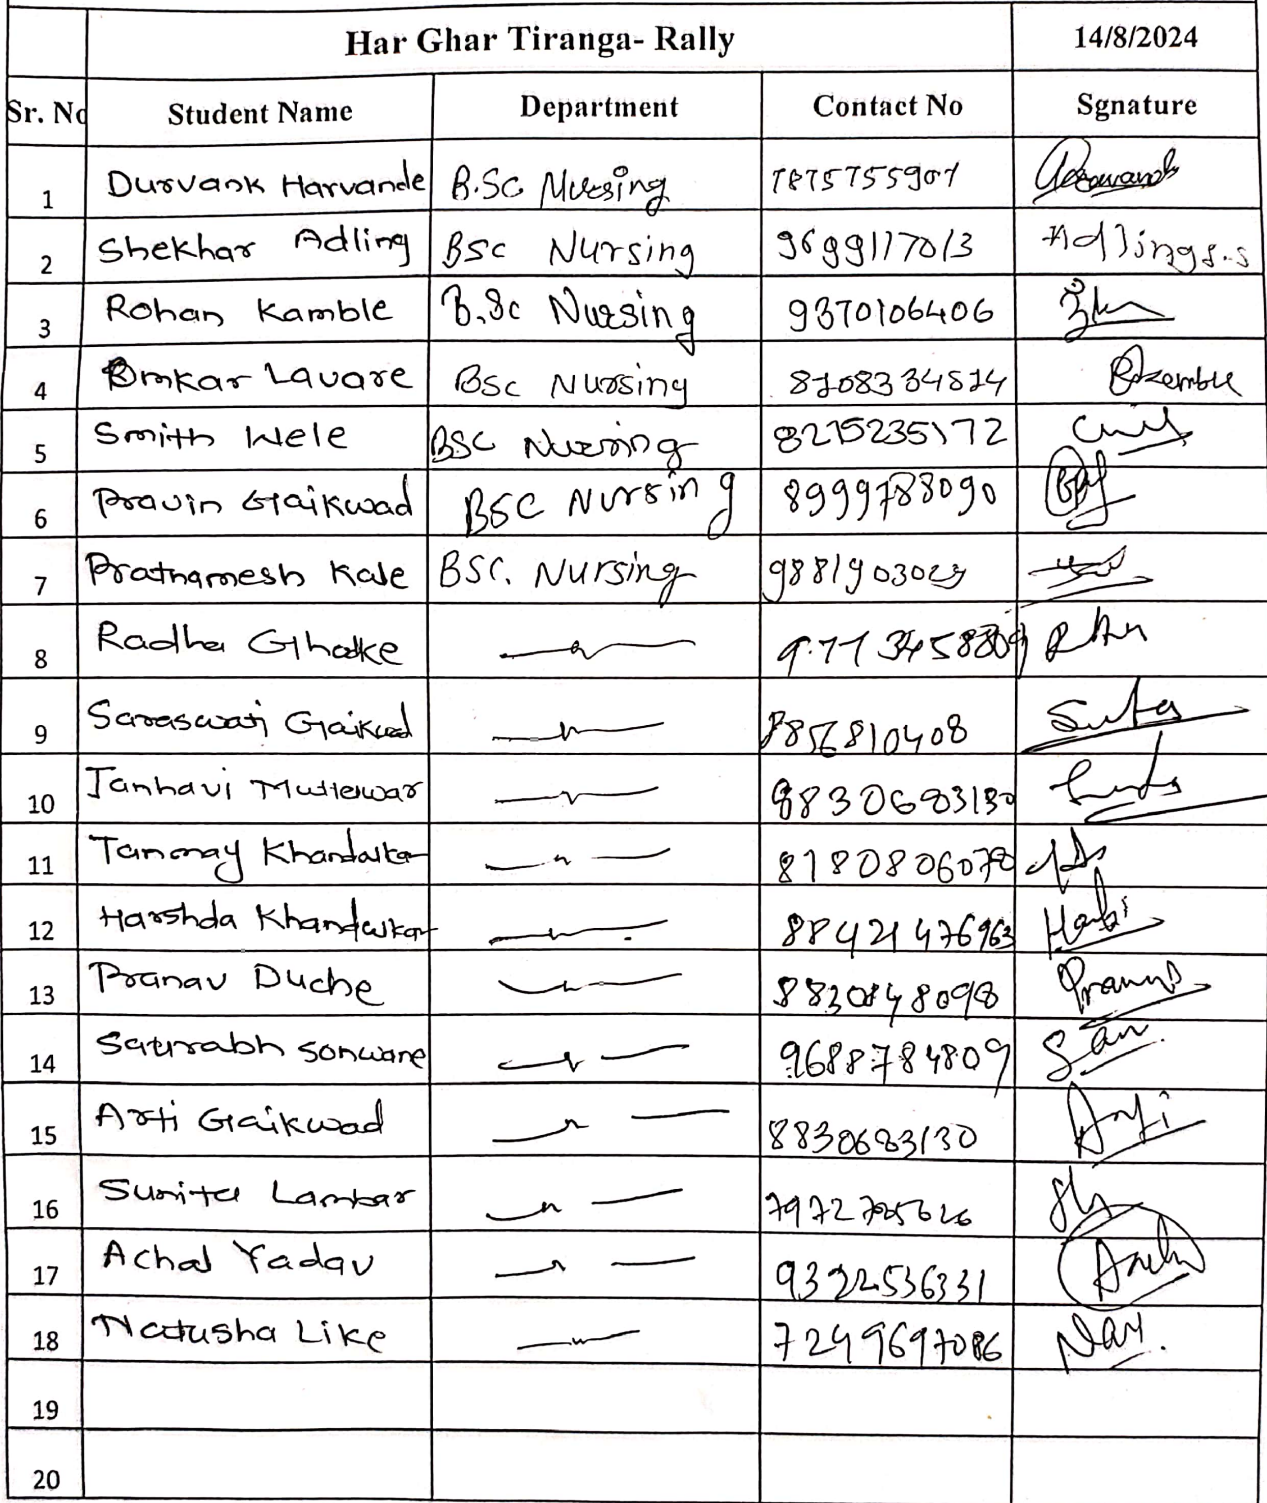 Har Ghar Tiranga- Rally 14/8/2024
Sr. No Student Name Department Contact No Sgnature
1 Durvank Harvande B.Sc Nursing 7875755907
2 Shekhar Adling BSc Nursing 9699117013 Adlings.s
3 Rohan Kamble B.Sc Nursing 9370106406
4 Omkar Lavare BSc Nursing 8108334514
5 Smith Wele BSC Nursing 8275235172
6 Pravin Gaikwad BSC Nursing 8999788090
7 Prathamesh Kale BSC. Nursing
8 Radha Ghatke
9 Saraswati Gaikwad
10 Janhavi Muttewar
11 Tanmay Khandalkar 8180806078
12 Harshda Khandalkar 8842147696
13 Pranav Duche Pranav
14 Saurabh Sonwane 9688784809 San.
15 Arti Gaikwad 8830683130 Arti
16 Sunita Lambar
17 Achal Yadav 9322536331
18 Natusha Like 7249697086 Nay.
19
20